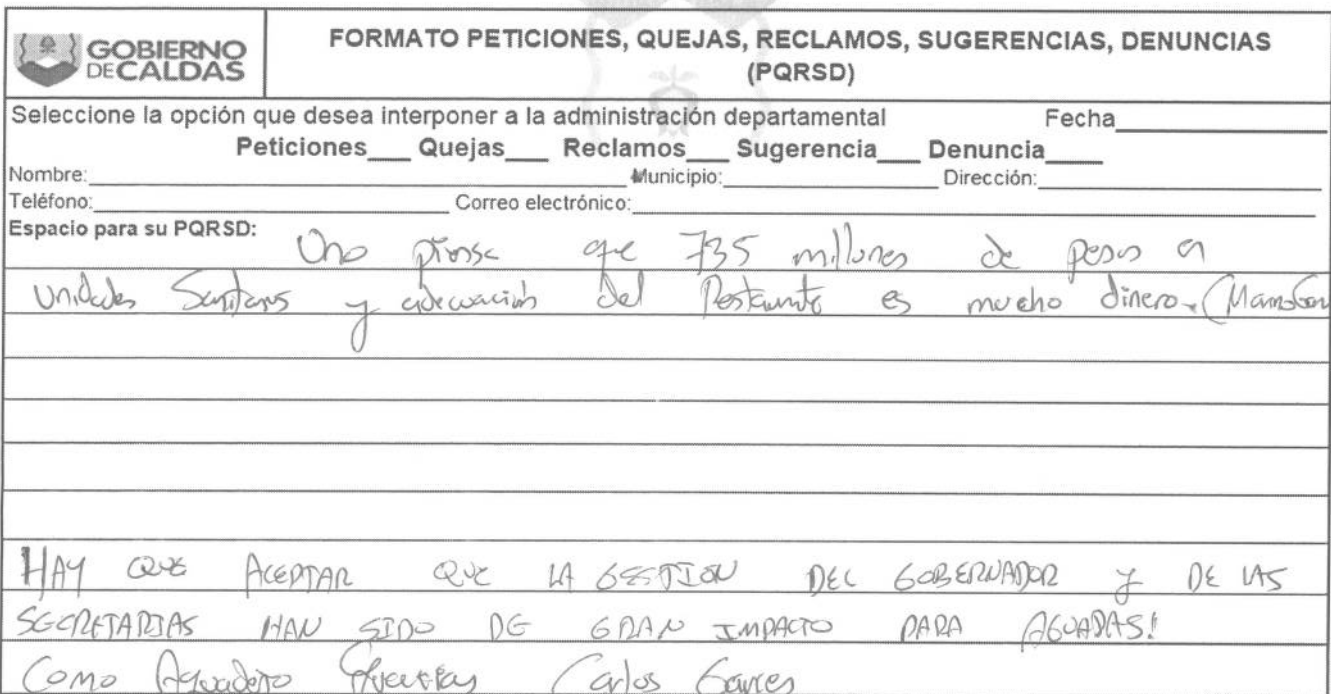 GOBIERNO
DE CALDAS
FORMATO PETICIONES, QUEJAS, RECLAMOS, SUGERENCIAS, DENUNCIAS
(PQRSD)
Seleccione la opción que desea interponer a la administración departamental Fecha
Peticiones___ Quejas___ Reclamos___ Sugerencia___ Denuncia___
Nombre: Municipio: Dirección:
Teléfono: Correo electrónico:
Espacio para su PQRSD:
Uno piensa que 735 millones de pesos en
Unidades Sanitarias y adecuación del Restaurante es mucho dinero.
HAY QUE ACEPTAR QUE LA GESTION DEL GOBERNADOR y DE LAS
SECRETARIAS HAN SIDO DE GRAN IMPACTO PARA AGUADAS!
Como Aguadeño Carlos Garces